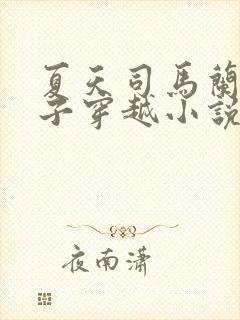 夏天司馬蘭
子穿越小說
夜南潇